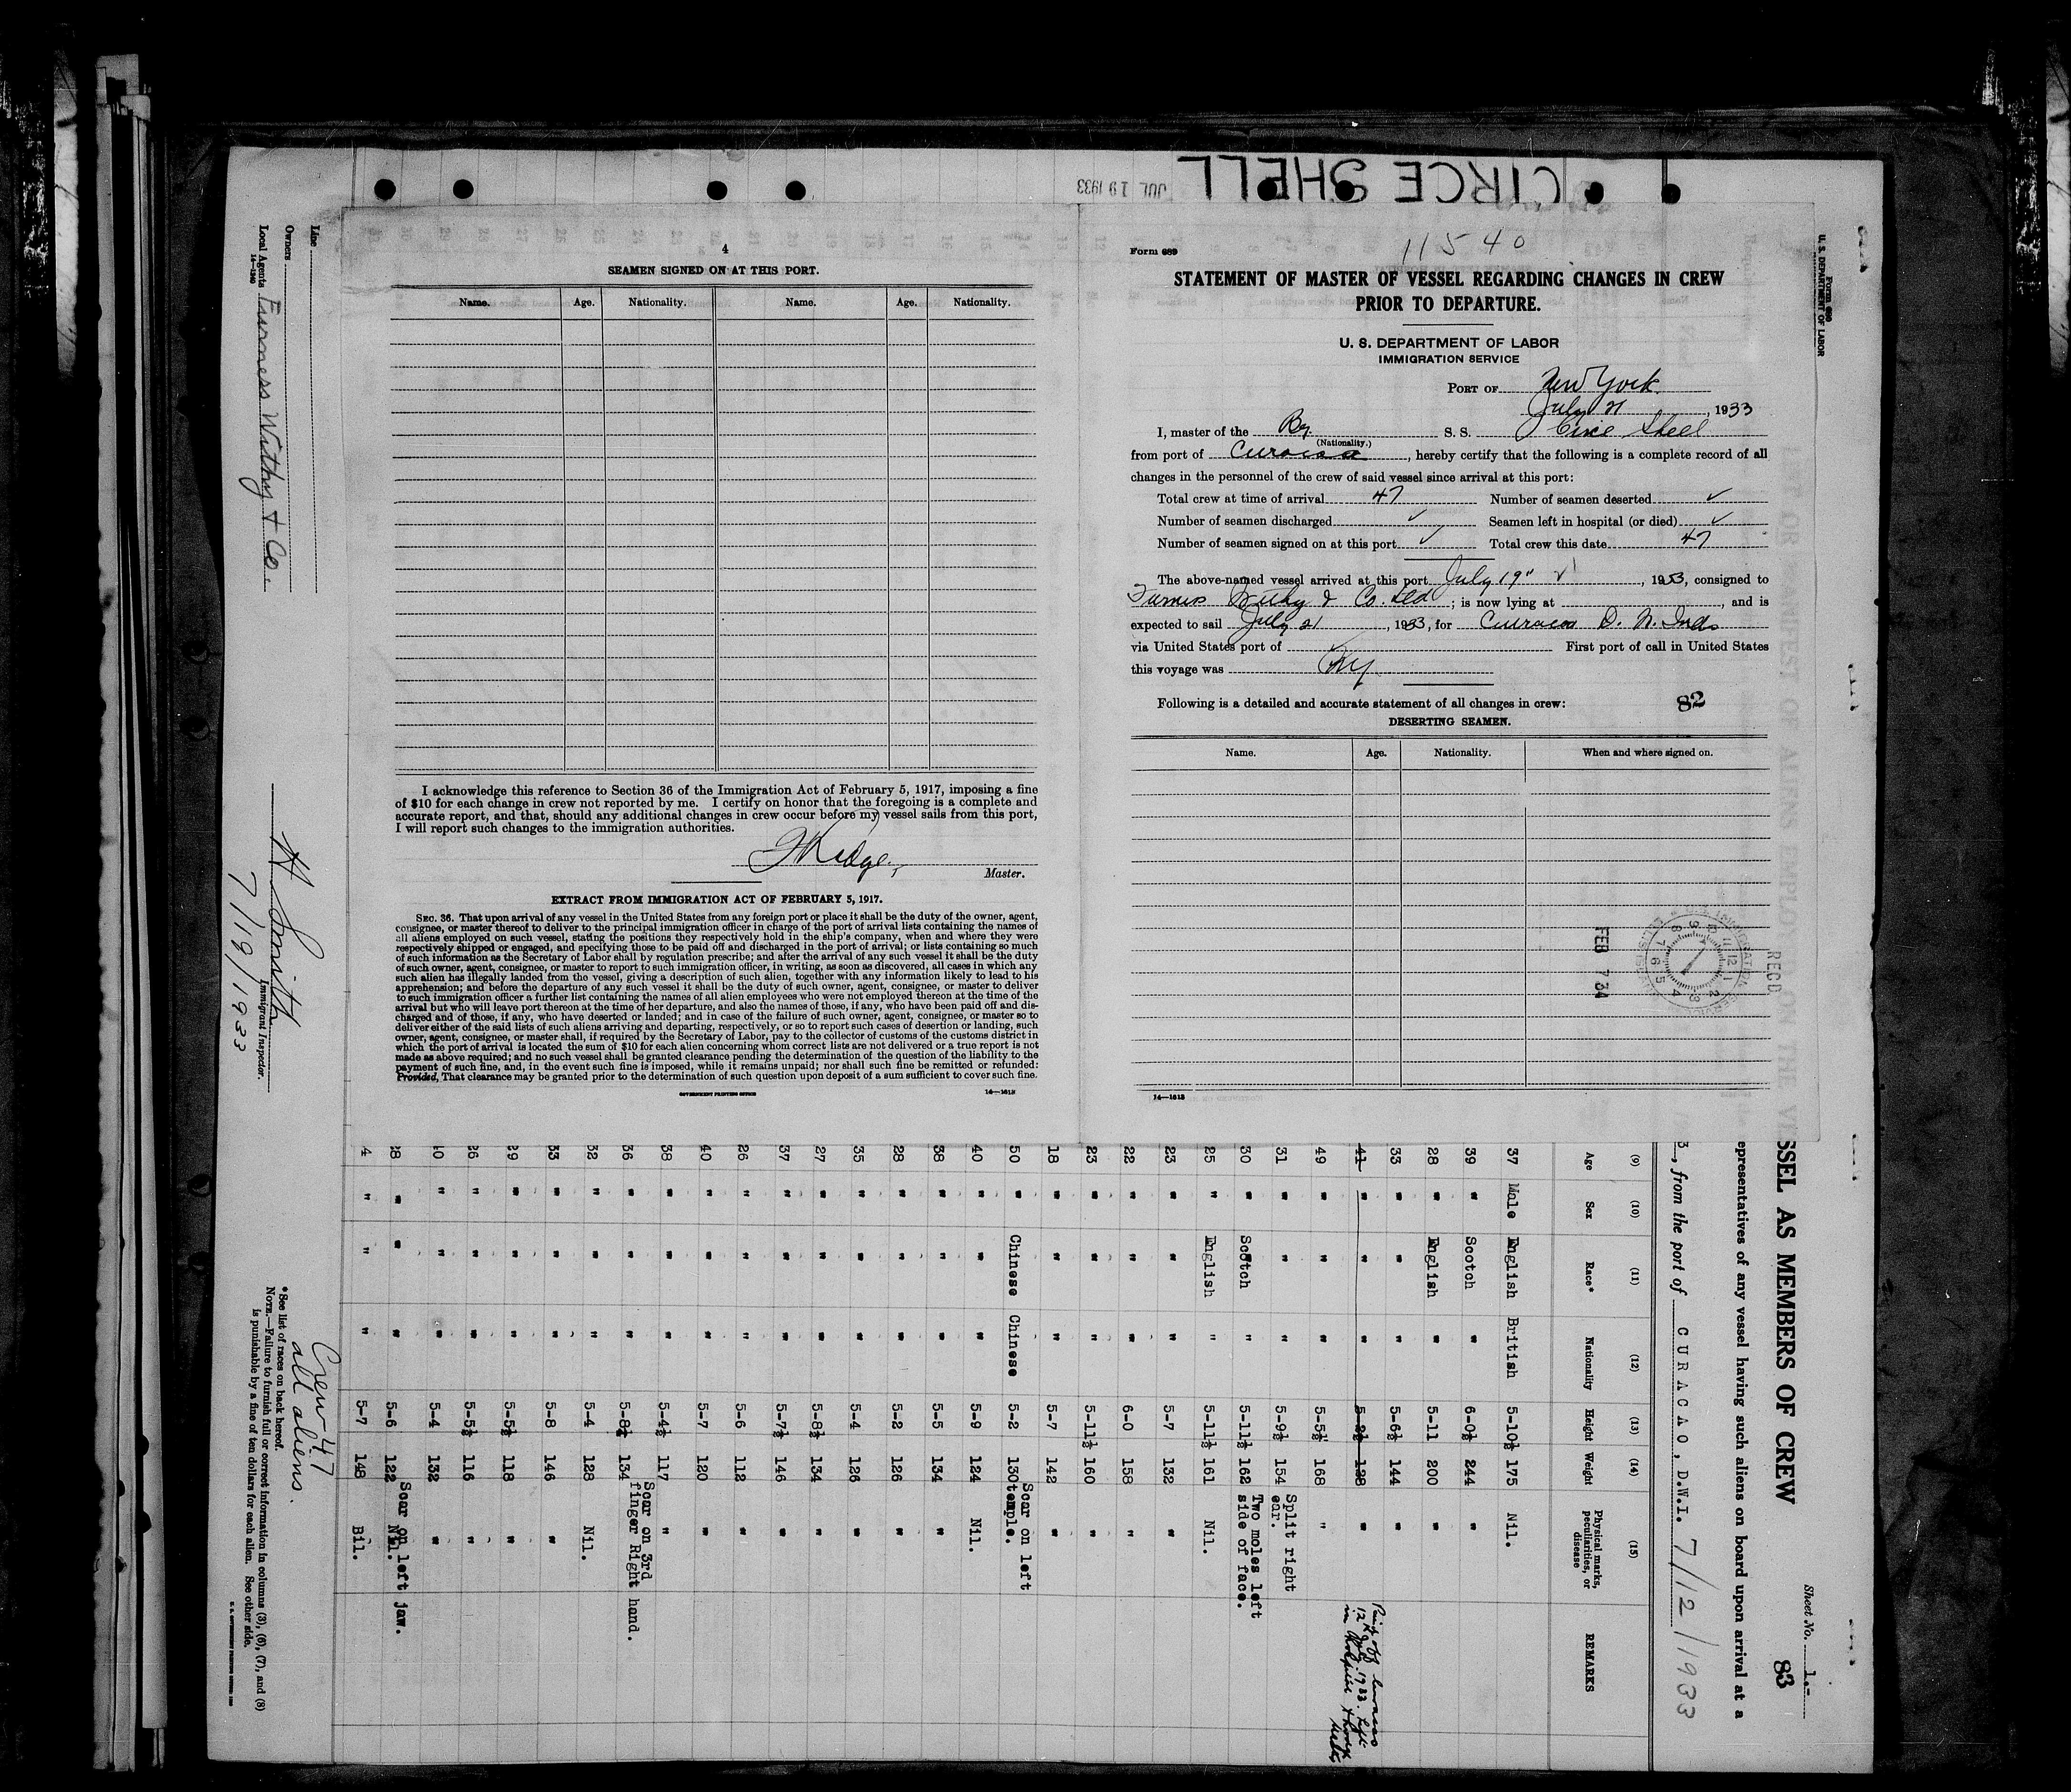 CIRCE SHELL
JUL 19 1933
4
SEAMEN SIGNED ON AT THIS PORT.
Name. Age. Nationality. Name. Age. Nationality.
I acknowledge this reference to Section 36 of the Immigration Act of February 5, 1917, imposing a fine
of $10 for each change in crew not reported by me. I certify on honor that the foregoing is a complete and
accurate report, and that, should any additional changes in crew occur before my vessel sails from this port,
I will report such changes to the immigration authorities.
Master.
EXTRACT FROM IMMIGRATION ACT OF FEBRUARY 5, 1917.
SEC. 36. That upon arrival of any vessel in the United States from any foreign port or place it shall be the duty of the owner, agent,
consignee, or master thereof to deliver to the principal immigration officer in charge of the port of arrival lists containing the names of
all aliens employed on such vessel, stating the positions they respectively hold in the ship's company, when and where they were
respectively shipped or engaged, and specifying those to be paid off and discharged in the port of arrival; or lists containing so much
of such information as the Secretary of Labor shall by regulation prescribe; and after the arrival of any such vessel it shall be the duty
of such owner, agent, consignee, or master to report to such immigration officer, in writing, as soon as discovered, all cases in which any
such alien has illegally landed from the vessel, giving a description of such alien, together with any information likely to lead to his
apprehension; and before the departure of any such vessel it shall be the duty of such owner, agent, consignee, or master to deliver
to such immigration officer a further list containing the names of all alien employees who were not employed thereon at the time of the
arrival but who will leave port thereon at the time of her departure, and also the names of those, if any, who have been paid off and dis-
charged and of those, if any, who have deserted or landed; and in case of the failure of such owner, agent, consignee, or master so to
deliver either of the said lists of such aliens arriving and departing, respectively, or so to report such cases of desertion or landing, such
owner, agent, consignee, or master shall, if required by the Secretary of Labor, pay to the collector of customs of the customs district in
which the port of arrival is located the sum of $10 for each alien concerning whom correct lists are not delivered or a true report is not
made as above required; and no such vessel shall be granted clearance pending the determination of the question of the liability to the
payment of such fine, and, in the event such fine is imposed, while it remains unpaid; nor shall such fine be remitted or refunded:
Provided, That clearance may be granted prior to the determination of such question upon deposit of a sum sufficient to cover such fine.
GOVERNMENT PRINTING OFFICE 14—1613
Form 689
11540
STATEMENT OF MASTER OF VESSEL REGARDING CHANGES IN CREW
PRIOR TO DEPARTURE.
U. S. DEPARTMENT OF LABOR
IMMIGRATION SERVICE
PORT OF New York
July 21, 1933
I, master of the Br. S. S. Circe Shell
(Nationality.)
from port of Curacao, hereby certify that the following is a complete record of all
changes in the personnel of the crew of said vessel since arrival at this port:
Total crew at time of arrival 47 Number of seamen deserted ✓
Number of seamen discharged ✓ Seamen left in hospital (or died) ✓
Number of seamen signed on at this port ✓ Total crew this date 47
The above-named vessel arrived at this port July 19", 1933, consigned to
Furness Withy & Co. Ltd; is now lying at , and is
expected to sail July 21, 1933, for Curacao D. W. Inds
via United States port of First port of call in United States
this voyage was NY
Following is a detailed and accurate statement of all changes in crew: 82
DESERTING SEAMEN.
Name. Age. Nationality. When and where signed on.
REC'D
FEB 7 34
14—1613
Form 689
U. S. DEPARTMENT OF LABOR
Sheet No. 1.-
83
SSEL AS MEMBERS OF CREW
epresentatives of any vessel having such aliens on board upon arrival at a
3, from the port of CURACAO, D.W.I. 7/12/1933
(9) (10) (11) (12) (13) (14) (15)
Age Sex Race* Nationality Height Weight Physical marks, peculiarities, or disease REMARKS
37 Male English British 5-10½ 175 Nil.
39 " Scotch " 6-0½ 244 "
28 " English " 5-11 200 "
33 " " " 5-6½ 144 "
41 " " " 5-8½ 138 " Paid off Curacao
12th July 1933. Left
in Hospital
49 " " " 5-5½ 168 "
31 " " " 5-9½ 154 Split right
ear.
30 " Scotch " 5-11½ 162 Two moles left
side of face.
25 " English " 5-11½ 161 Nil.
23 " " " 5-7 132 "
22 " " " 6-0 158 "
23 " " " 5-11½ 160 "
18 " " " 5-7 142 "
50 " Chinese Chinese 5-2 130 Scar on left
temple.
40 " " " 5-9 124 Nil.
38 " " " 5-5 134 "
28 " " " 5-2 126 "
35 " " " 5-4 126 "
27 " " " 5-8½ 134 "
37 " " " 5-7½ 146 "
26 " " " 5-6 112 "
40 " " " 5-7 120 "
38 " " " 5-4½ 117 "
36 " " " 5-8½ 134 Scar on 3rd
finger Right hand.
32 " " " 5-4 128 Nil.
33 " " " 5-8 146 "
29 " " " 5-5½ 118 "
26 " " " 5-5½ 116 "
40 " " " 5-4 132 "
28 " " " 5-6 122 Scar on left jaw.
4 " " " 5-7 148 Nil.
Line
Owners
Local Agents Furness Withy & Co.
14—1240
H Smith
Immigrant Inspector.
7/19/1933
Crew 47
all aliens.
*See list of races on back hereof.
NOTE.—Failure to furnish full or correct information in columns (3), (6), (7), and (8)
is punishable by a fine of ten dollars for each alien. See other side.